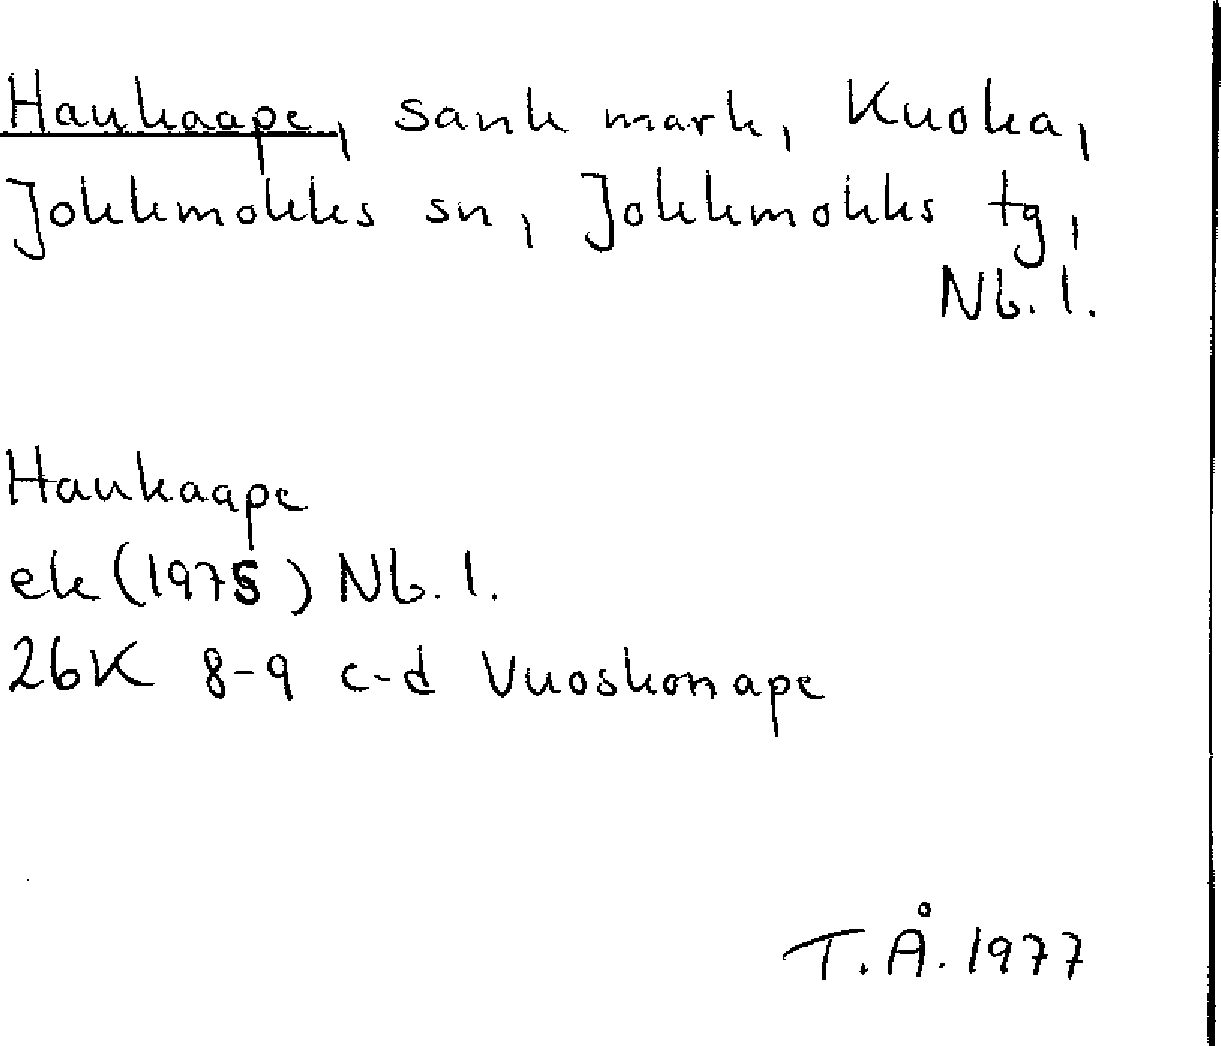 Haukaape, sank mark, Kuoka,
Jokkmokks sn, Jokkmokks tg,
Nb. l.
Haukaape
ek (1975) Nb. l.
26K 8-9 c-d Vuoskonape
T. Å. 1977